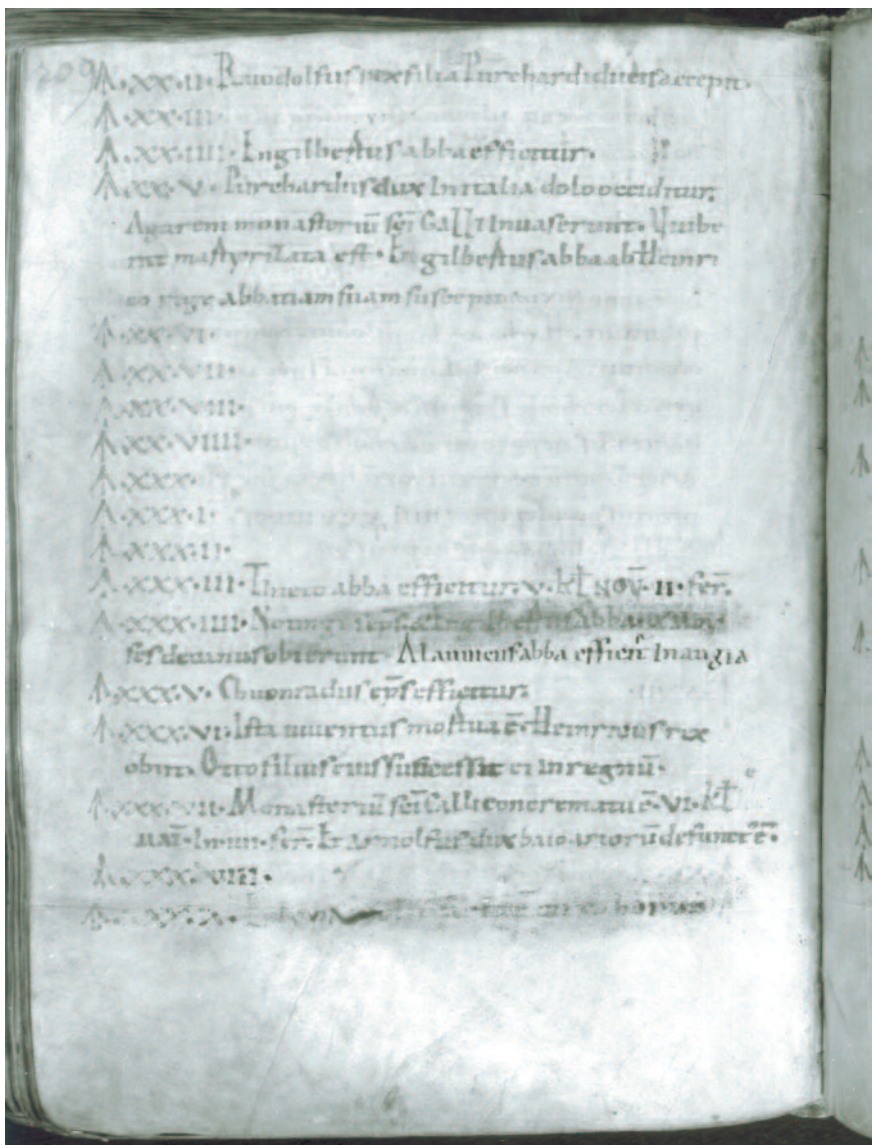 209
A·XX·II· Ruodolfus rex filiā Purchardi ducis accepit·
A·XX·III·
A·XX·IIII· Engilbertus abba efficitur·
A·XX·V· Purchardus dux In italia dolo occiditur·
Agareni monasteriū sc̄i Galli Inuaserunt· Vuibe
martyrizata est· Engilbertus abba ab Heinri
co rege abbatiam suam
A·XX·VI·
A·XX·VII·
A·XX·VIII·
A·XX·VIIII·
A·XXX·
A·XXX·I·
A·XXX·II·
A·XXX·III· Thieto abba efficitur· V· kł NOV̄· II· fer̄·
A·XXX·IIII· Engilbertus abba
decanus obierunt· Alauuicus abba efficit̄ In augia
A·XXX·V· Chuonradus ep̄s efficitur·
A·XXX·VI· Ista iuuentus mortua ē· Heinricus rex
obiit· Otto filius eius successit ei in regnū·
A·XXX·VII· Monasteriū sc̄i Galli concrematū ē· VI· kł
MAI· In· IIII· fer̄· Et Arnolfus dux baioariorū defunct' ē·
A·XXX·VIII·
A·XXX·IX·